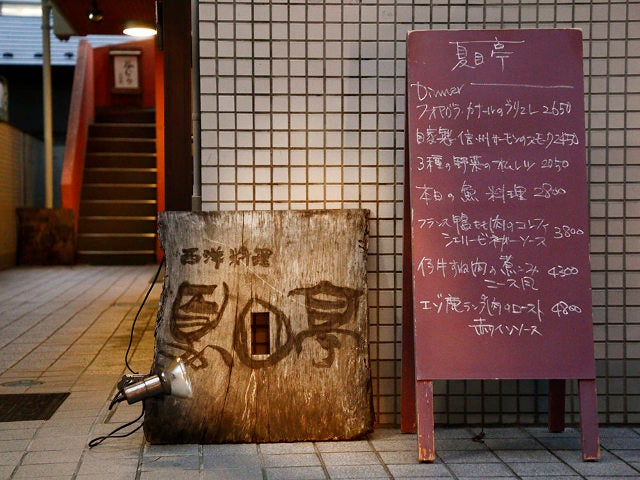 西洋料理
夏目亭
夏目亭
Dinner
フォアグラ・カナールのテリーヌ 2650
自家製 信州サーモンのスモーク 2450
3種の野菜のオムレツ 2050
本日の魚料理 2800
フランス鴨もも肉のコンフィ
シェリービネガーソース 3800
仔牛すね肉の煮こみ
ニース風 4300
エゾ鹿ランプ肉のロースト 4800
赤ワインソース